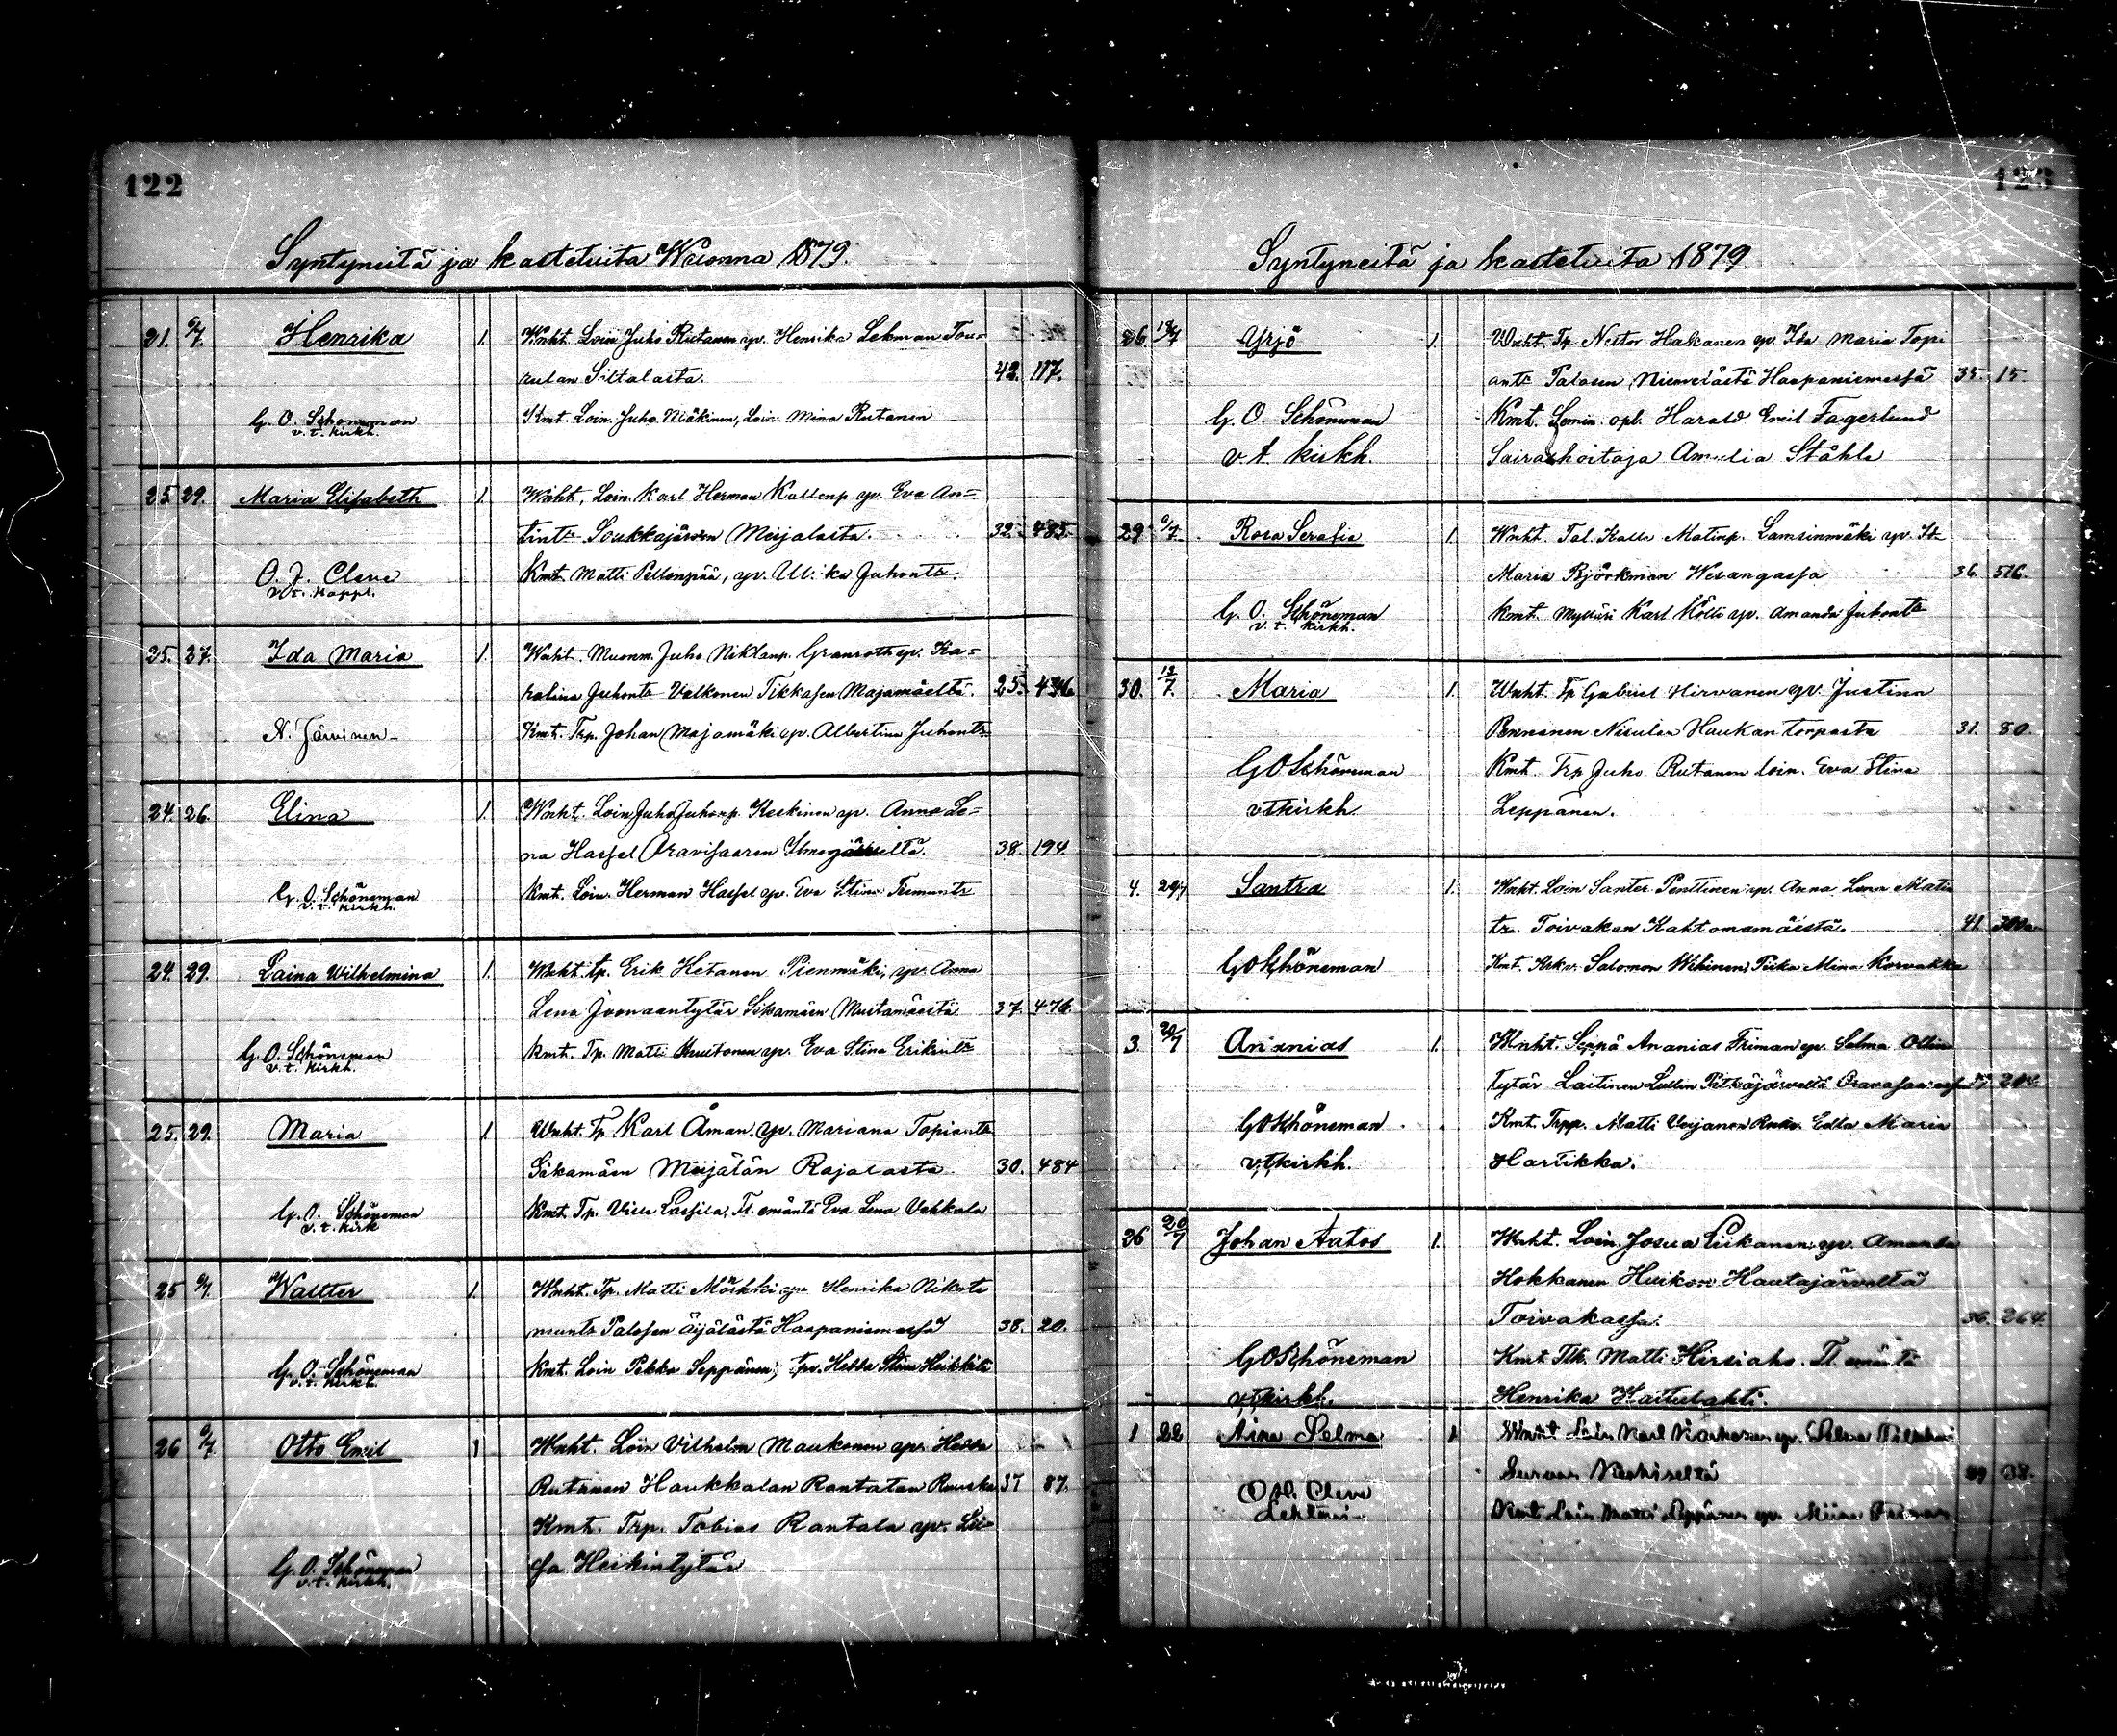 122
Syntyneitä ja kastetuita Wuonna 1879.
21. 6/7. Henrika 1. Wnht. Loin Juho Rutanen vp. Henrika Lekman Tou-
rulan Siltalasta. 42. 117.
G. O. Schöneman Kmt. Loin. Juho Mäkinen, Loin. Mina Rutanen
v. t. kirkh.
25. 29. Maria Elisabeth 1. Wnht. Loin. Karl Herman Kallenp. vp. Eva An-
tintr Soukkajärven Meijalasta. 32. 485.
O. J. Cleve Kmt. Matti Peltenpää, vp. Ulrika Juhontr.
v. t. kappl.
25. 27. Ida Maria 1. Wnht. Muonm. Juho Niklanp. Granroth vp. Ka-
rolina Juhontr Valkonen Tikkasen Majamäeltä. 25.
N. Järvinen Kmt. Trp. Johan Majamäki vp. Albertina Juhontr
24. 26. Elina 1. Wnht. Loin Juho Juhonp. Keskinen vp. Anna Le-
na Hassel Oravisaaren 38. 194.
G. O. Schöneman Kmt. Loin. Herman Hassel vp. Eva Stina
v. t. kirkh.
24. 29. Laina Wilhelmina 1. Wnht. tp. Erik Ketanen Pienmäki, vp. Anna
Lena Joonaantytär Sikamäen Mustamäeltä 37. 476.
G. O. Schöneman Kmt. Tp. Matti Huutonen vp. Eva Stina Erikintr
v. t. kirkh.
25. 29. Maria 1. Wnht. Tp Karl Åman. vp. Mariana Topiantr
Sikamäen Meijälän Rajalasta 30. 484
G. O. Schöneman Kmt. Tp. Ville Lassila, Tl. emäntä Eva Lena Vehkala
v. t. kirk
25 6/7. Waltter 1. Wnht. Tp. Matti vp. Henrika
Palosen Äijälästä Haapaniemessä 38. 20.
G. O. Schöneman Kmt. Loin Pekka Seppänen,
v. t. kirkh.
26 6/7. Otto Emil 1 Wnht. Loin Vilhelm Maukonen vp.
Rutanen Haukkalan Rantalan 37 87.
Kmt. Trp. Tobias Rantala vp. Lii-
G. O. Schöneman sa Heikintytär
v. t. kirkh.
123
Syntyneitä ja kastetuita 1879
26. 13/7 Yrjö 1. Wnht. Tp. Nestor Hakanen vp. Ida Maria Topi
antr Palosen Niemelästä Haapaniemessä 35. 15.
G. O. Schöneman Kmt. Semin. opl. Harald Emil Fagerlund
v. t. kirkh. Sairashoitaja Amalia Ståhle
29. 6/7. Rosa Serafia 1. Wnht. Tal. Kalle Matinp. Lamsinmäki vp.
Maria Björkman Wesangassa 36. 516.
G. O. Schöneman Kmt. Mylläri Karl Kölli vp. Amanda Juhontr
v. t. kirkh.
30. 13/7. Maria 1. Wnht. Tp Gabriel Hirvanen vp. Justina
Pennanen Nisulan Haukan torpasta 31. 80.
G O Schöneman Kmt. Trp Juho Rutanen loin. Eva Stina
v t kirkh. Leppänen.
4. 20/7 Santra 1. Wnht. Loin Santer Penttinen vp. Anna Lena Matin
tr. Toivakan Kahtomamäestä. 41
G O Schöneman Kmt. Salomon Wihinen, Piika Mina Korvakka
3. 20/7 Ananias 1. Wnht. Seppä Ananias Friman vp. Selma Ollin
tytär Laitinen Pitkäjärveltä Oravasaaressa
G O Schöneman Kmt. Trpp. Matti Veijanen Edla Maria
v. t. kirkh. Harikka.
26 20/7 Johan Aatos 1. Wnht. Loin. Josua Liikanen vp. Amanda
Kokkanen Huikon Hautajärveltä
Toivakassa. 36. 264
G O Schöneman Kmt Tlk. Matti Hirsiaho. Tl emäntä
v. t kirkh. Henrika
1 22 Aina Selma 1 Wnht Loin Karl vp. Selma

Cleve
Lehtori Kmt Loin Matti Leppänen vp. Miina